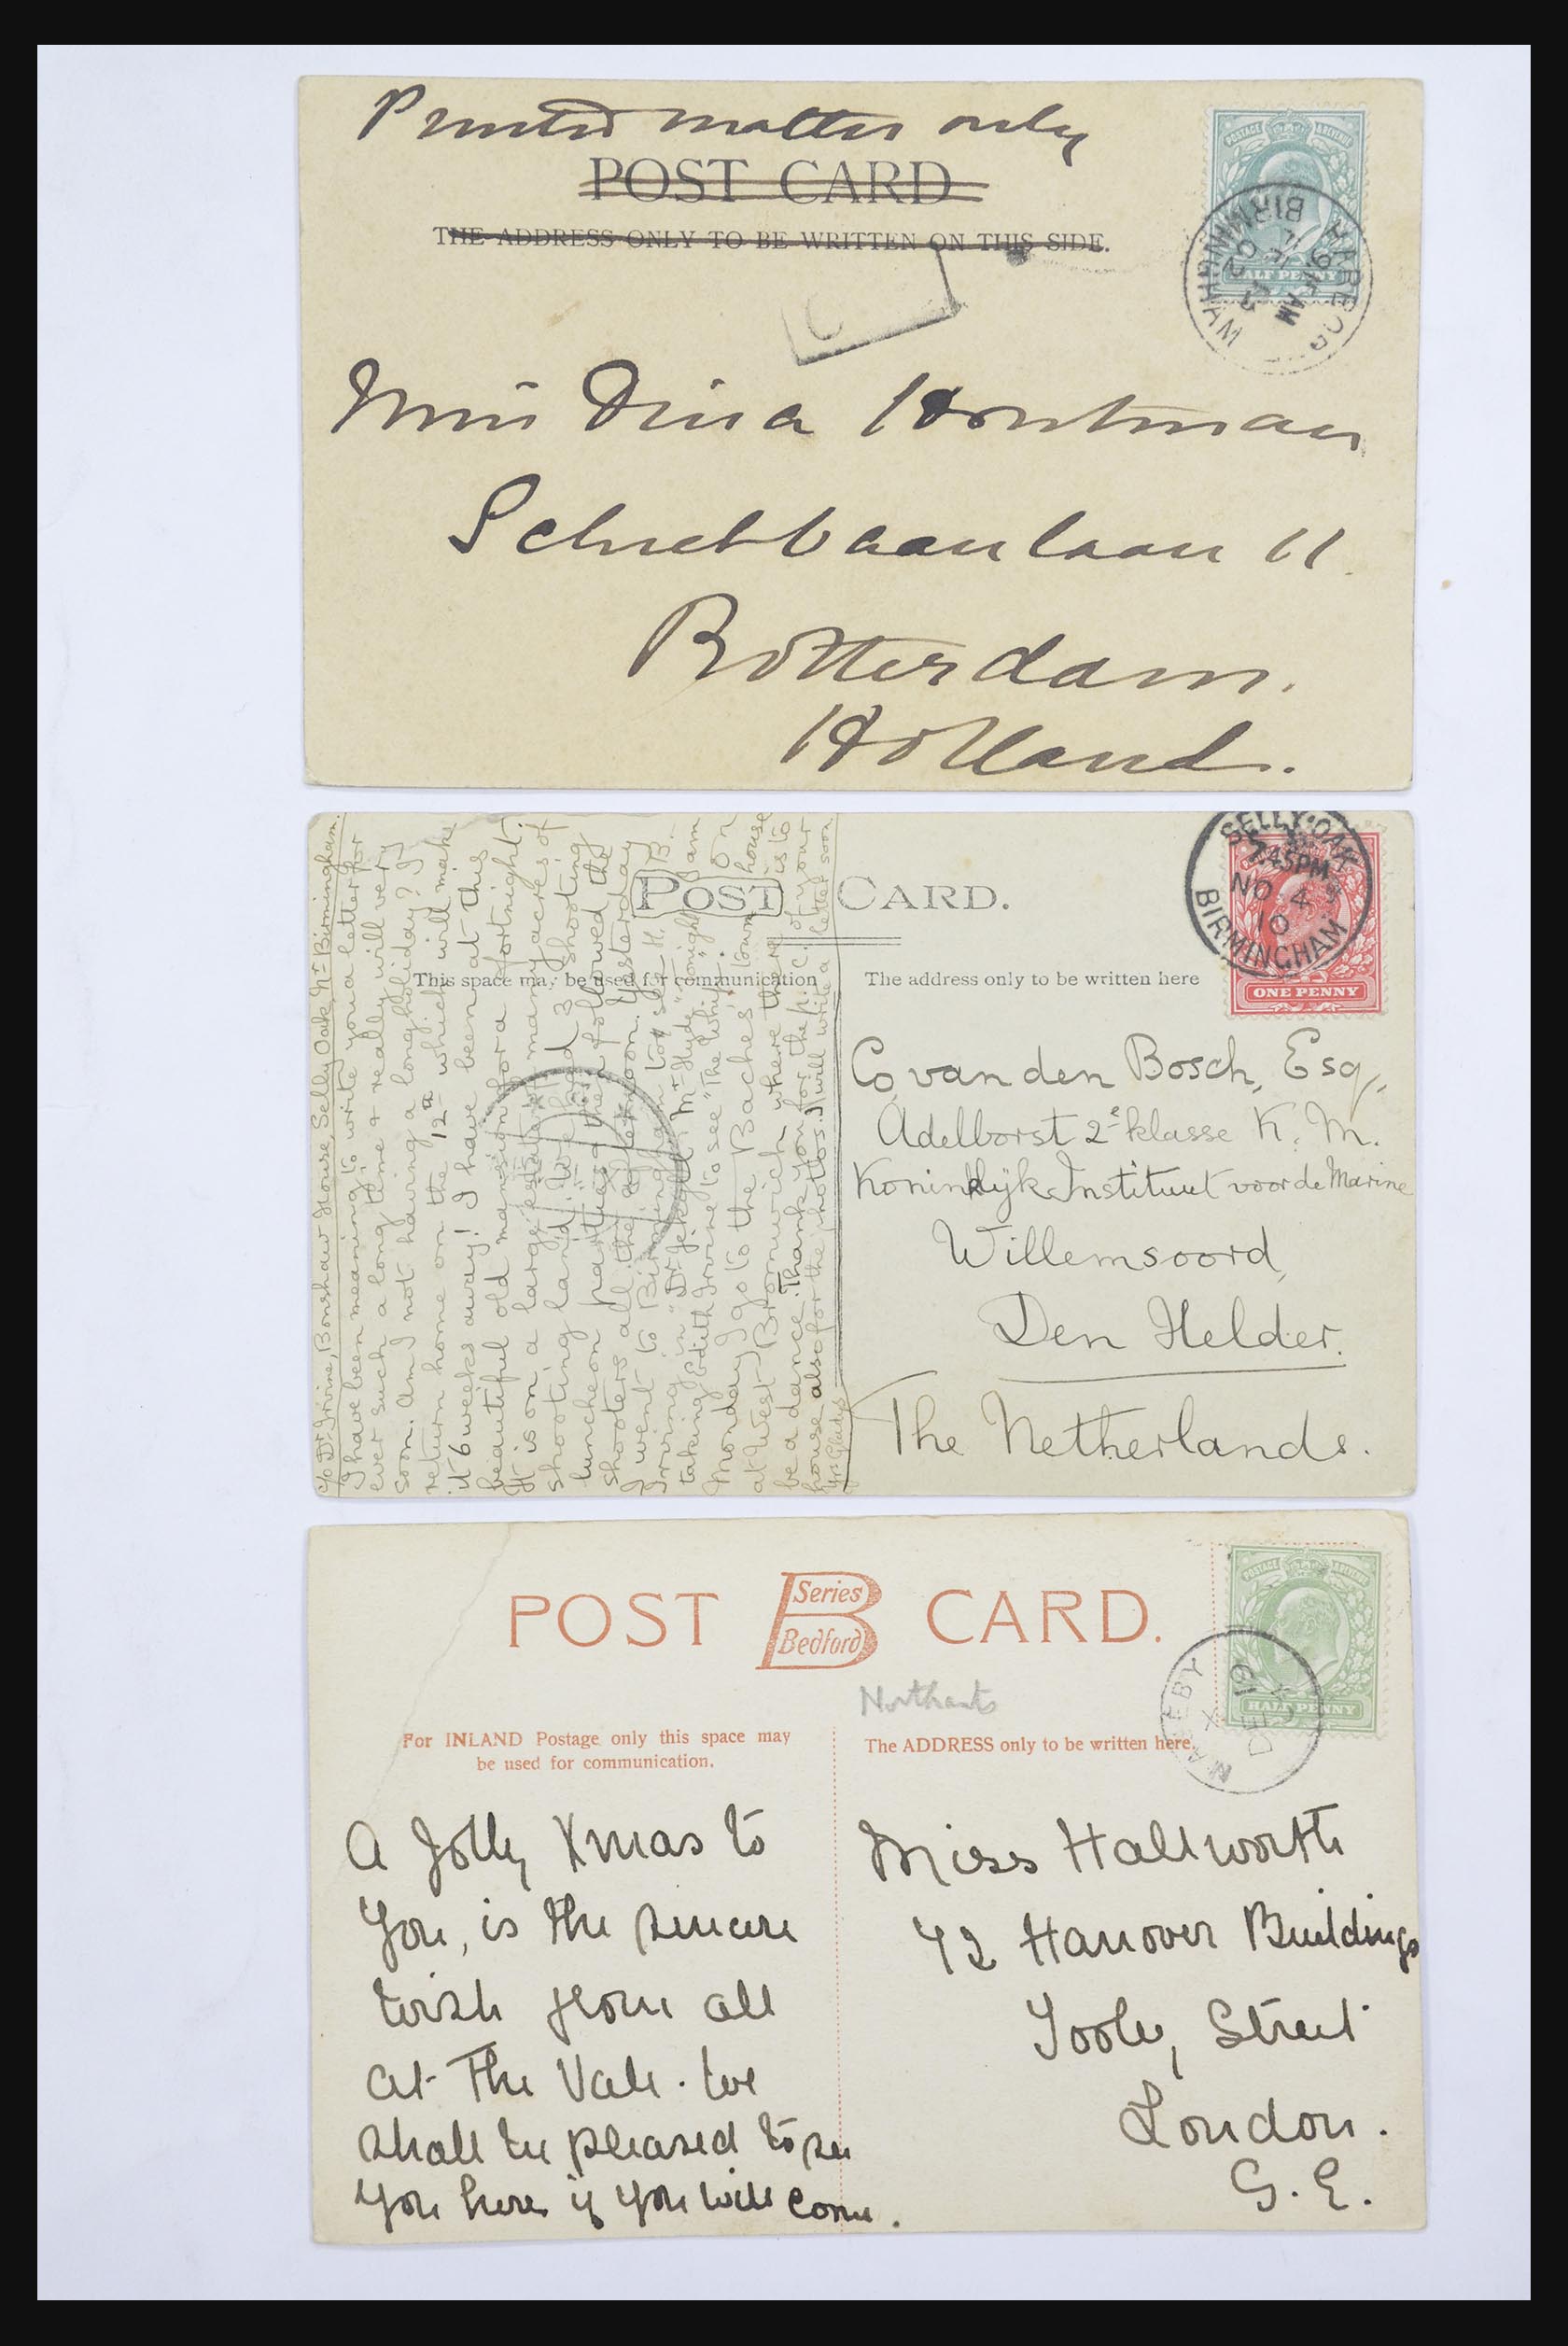 Printed matter only
POST CARD
THE ADDRESS ONLY TO BE WRITTEN ON THIS SIDE.
POSTAGE & REVENUE
HALF PENNY
BIRMINGHAM
9 15 AM
02
Miss Dina Houtman
Schietbaanlaan 11.
Rotterdam.
Holland.
POST CARD.
This space may be used for communication
The address only to be written here
SELLY·OAK
7.45PM
NO 4
10
BIRMINGHAM
ONE PENNY
c/o Dr. Irvine, Bonshaw House, Selly Oak, Nr. Birmingham.
I have been meaning to write you a letter for
ever such a long time & really will very
soon. Am I not having a long holiday? I
return home on the 12th which will make
it 6 weeks away! I have been at this
beautiful old mansion for a fortnight.
It is on a large estate of many acres of
shooting land. We had 3 shooting
luncheon parties & then followed the
shooters all the afternoon. Yesterday
I went to Birmingham to see H. B.
Irving in "Dr. Jekyll & Mr. Hyde". Tonight I am
taking Edith Irvine to see "The Whip". On
Monday I go to the Baches' town house
at West Bromwich where there is to
be a dance. Thank you for the p.c. of your
house also for the photos. I will write a letter soon
Yrs. Gladys
Co van den Bosch, Esq,
Adelborst 2e klasse K. M.
Koninklijk Instituut voor de Marine
Willemsoord,
Den Helder.
The Netherlands.
POST Series B Bedford CARD.
Northants
For INLAND Postage only this space may
be used for communication.
The ADDRESS only to be written here.
POSTAGE & REVENUE
HALF PENNY
X
DE
A Jolly Xmas to
you, is the sincere
wish from all
at The Vale. We
shall be pleased to see
you here if you will come.
Miss Hallworth
42 Hanover Buildings
Tooley Street
London.
S.E.